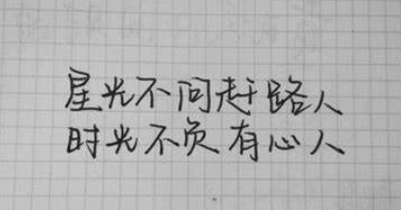 星光不问赶路人
时光不负有心人